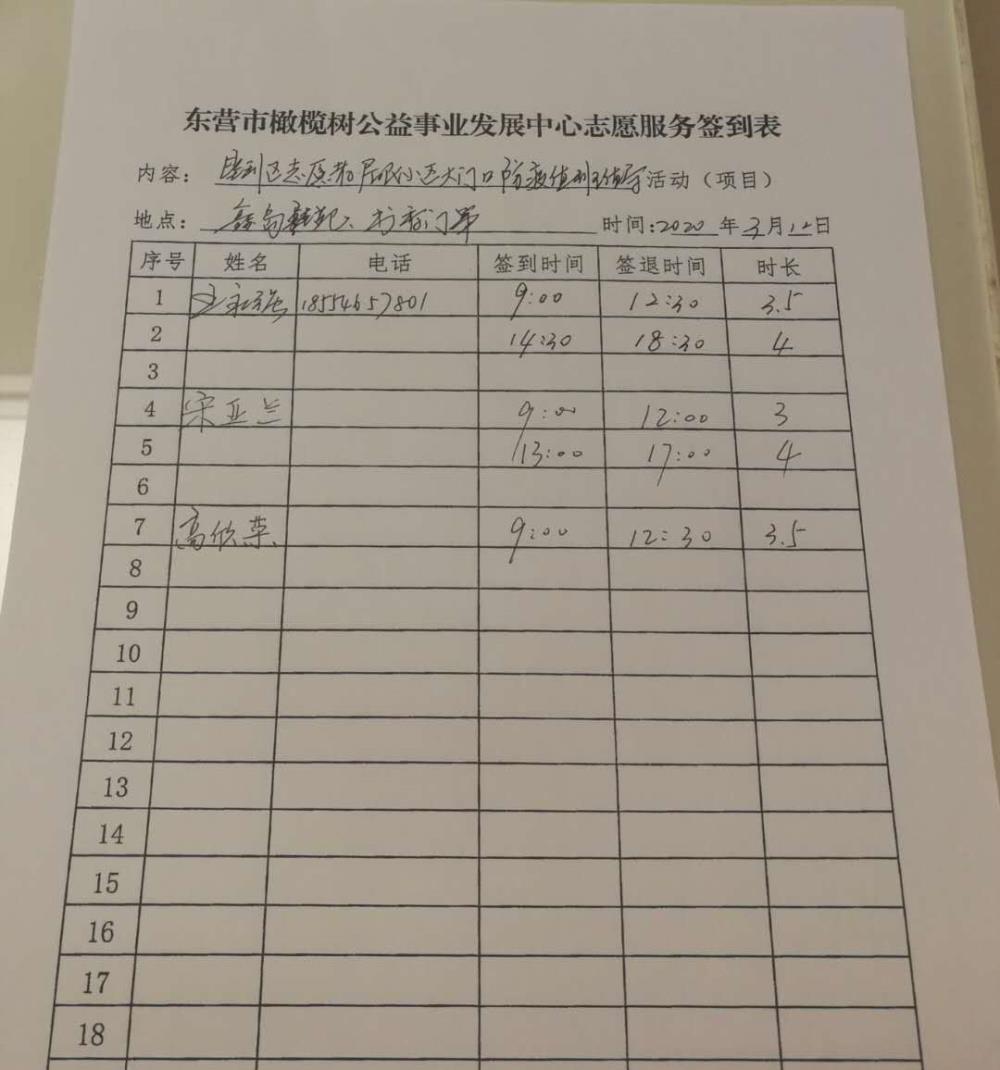 东营市橄榄树公益事业发展中心志愿服务签到表
内容: 垦利区志愿者居民小区大门口防疫值班值守活动(项目)
地点: 时间:2020年3月12日
序号 姓名 电话 签到时间 签退时间 时长
1 18554657801 9:00 12:30 3.5
2 14:30 18:30 4
3
4 宋亚兰 9:00 12:00 3
5 13:00 17:00 4
6
7 高欣荣 9:00 12:30 3.5
8
9
10
11
12
13
14
15
16
17
18